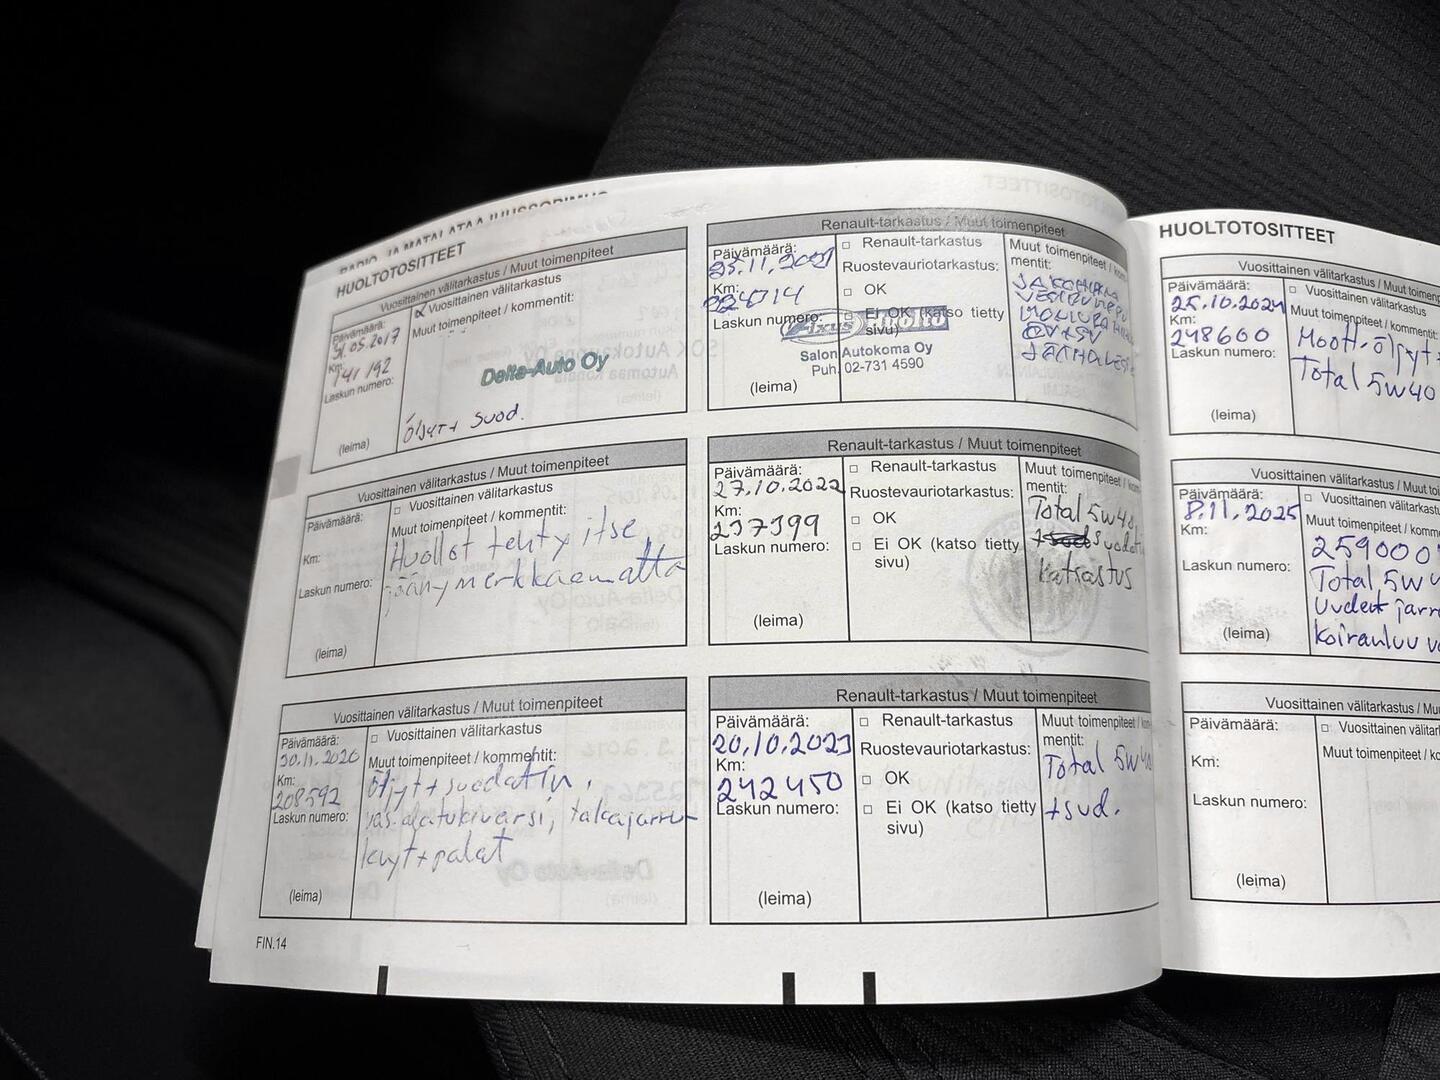 HUOLTOTOSITTEET
Vuosittainen välitarkastus / Muut toimenpiteet
Päivämäärä:
31.05.2017
Km:
141192
Laskun numero:
(leima)
Vuosittainen välitarkastus
Muut toimenpiteet / kommentit:
Delta-Auto Oy
Öljyt + suod.
Vuosittainen välitarkastus / Muut toimenpiteet
Päivämäärä:
Km:
Laskun numero:
(leima)
□ Vuosittainen välitarkastus
Muut toimenpiteet / kommentit:
Huollot tehty itse,
jääny merkkaamatta
Vuosittainen välitarkastus / Muut toimenpiteet
Päivämäärä:
30.11.2020
Km:
208592
Laskun numero:
(leima)
□ Vuosittainen välitarkastus
Muut toimenpiteet / kommentit:
öljyt + suodatin,
vas. alatukivarsi, takajarru-
levyt + palat
FIN.14
Renault-tarkastus / Muut toimenpiteet
Päivämäärä:
25.11.2021
Km:
224714
Laskun numero:
(leima)
□ Renault-tarkastus
Ruostevauriotarkastus:
□ OK
□ Ei OK (katso tietty
sivu)
Fixus Huolto
Salon Autokoma Oy
Puh. 02-731 4590
Muut toimenpiteet / kom
mentit:
JAKOHIHNA
VESIPUMPPU
Renault-tarkastus / Muut toimenpiteet
Päivämäärä:
27.10.2022
Km:
237399
Laskun numero:
(leima)
□ Renault-tarkastus
Ruostevauriotarkastus:
□ OK
□ Ei OK (katso tietty
sivu)
Muut toimenpiteet / kom
mentit:
Total 5w40
+ suodatin
katsastus
Renault-tarkastus / Muut toimenpiteet
Päivämäärä:
20.10.2023
Km:
242450
Laskun numero:
(leima)
□ Renault-tarkastus
Ruostevauriotarkastus:
□ OK
□ Ei OK (katso tietty
sivu)
Muut toimenpiteet / kom
mentit:
Total 5w40
+ sud.
HUOLTOTOSITTEET
Vuosittainen välitarkastus / Muut toimenp
Päivämäärä:
25.10.2024
Km:
248600
Laskun numero:
(leima)
□ Vuosittainen välitarkastus
Muut toimenpiteet / kommentit:
Moott. öljyt +
Total 5w40
Vuosittainen välitarkastus / Muut toi
Päivämäärä:
8.11.2025
Km:
Laskun numero:
(leima)
□ Vuosittainen välitarkastus
Muut toimenpiteet / komme
259000
Total 5w4
Uudet jarru
koiranluu v
Vuosittainen välitarkastus / Mu
Päivämäärä:
Km:
Laskun numero:
(leima)
□ Vuosittainen välitark
Muut toimenpiteet / ko